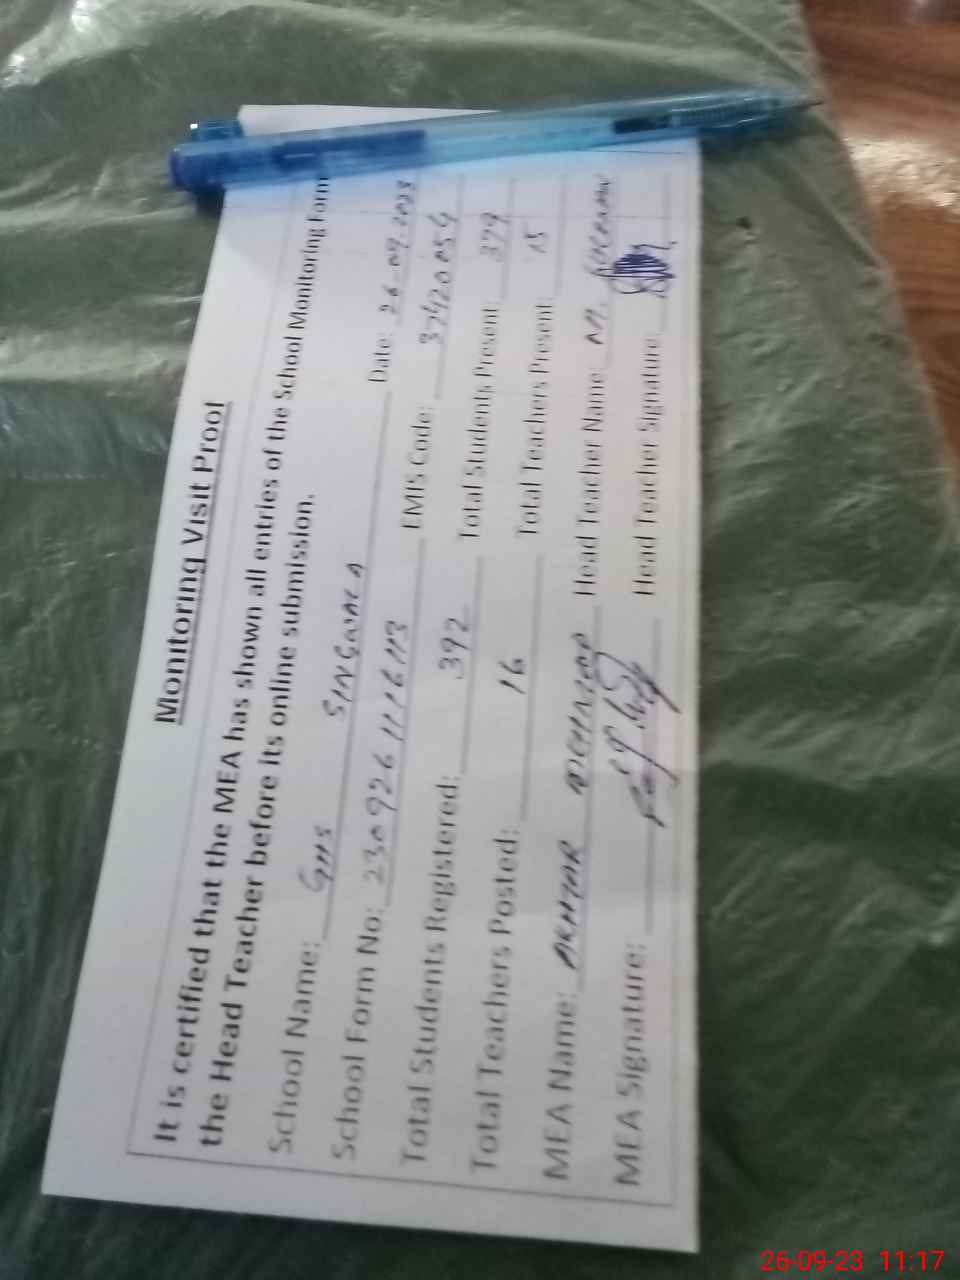 Monitoring Visit Proof
It is certified that the MEA has shown all entries of the School Monitoring Form
the Head Teacher before its online submission.
School Name: GMS SINGWALA Date: 26-09-2023
School Form No: 2309261116113 EMIS Code: 37420054
Total Students Registered: 392 Total Students Present: 379
Total Teachers Posted: 16 Total Teachers Present: 15
MEA Name: AKHTAR MEHMOOD Head Teacher Name: M.
MEA Signature: Head Teacher Signature:
26-09-23 11:17